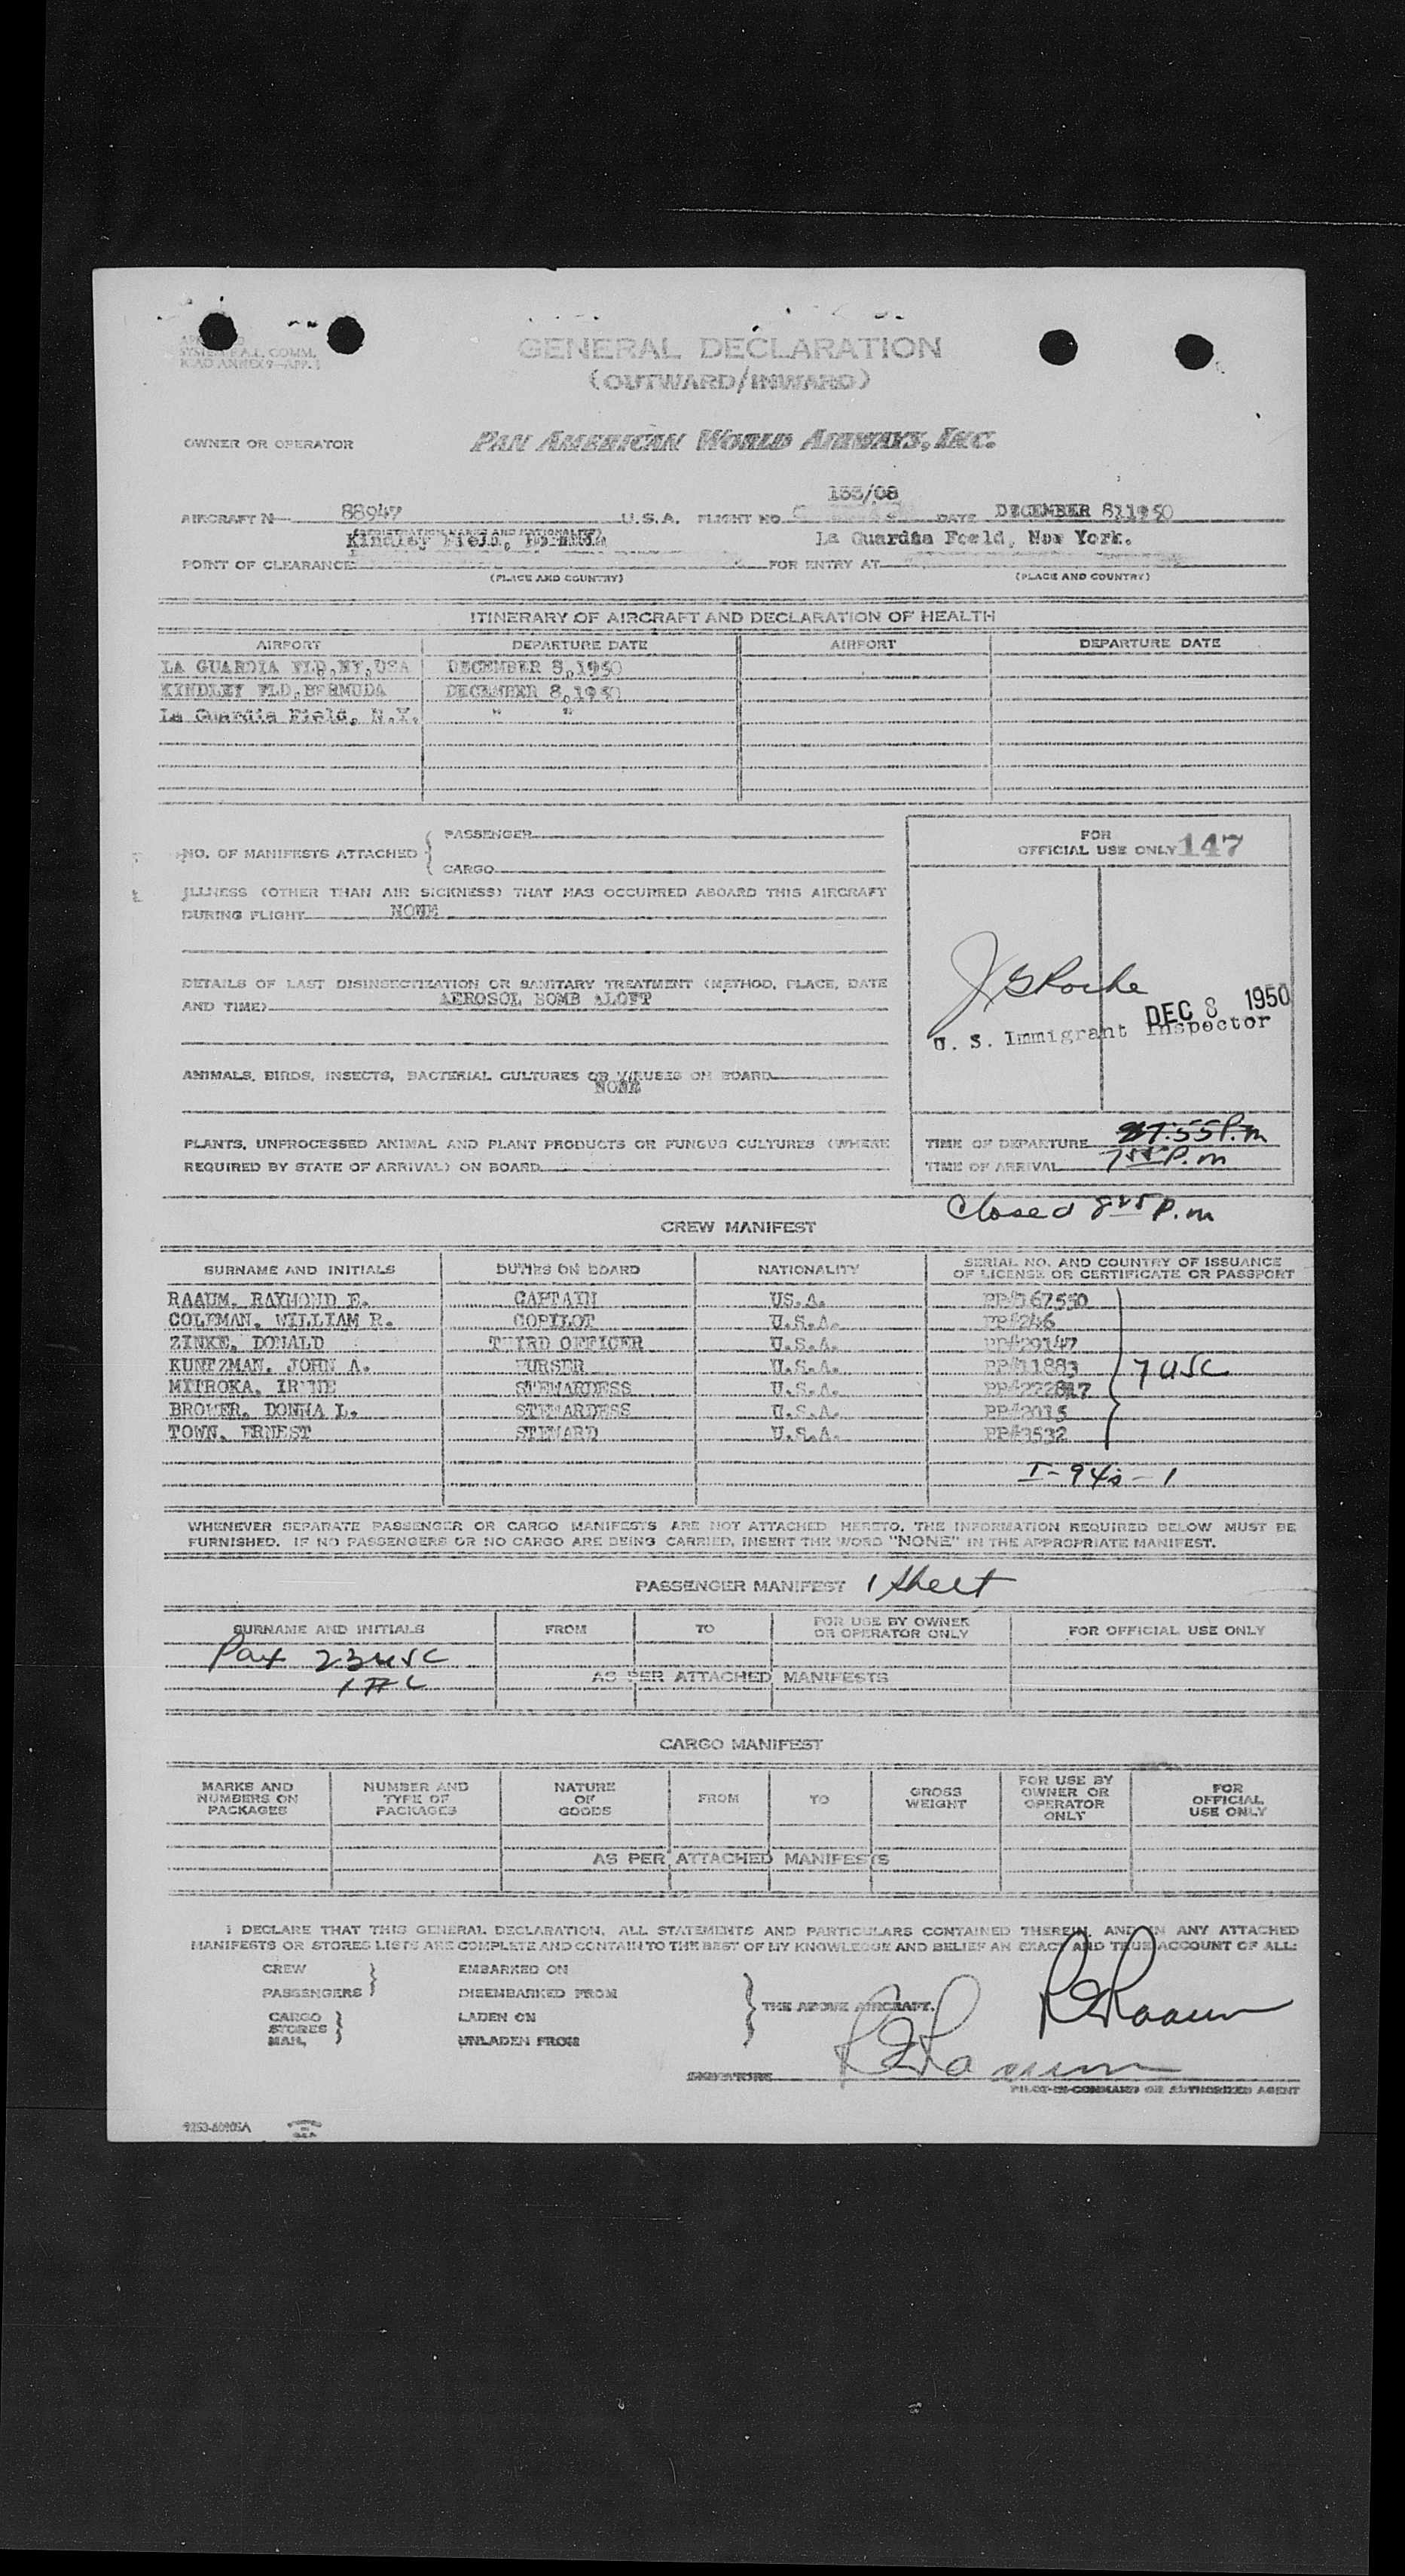 SYSTEM F.A.L. COMM.
ICAO ANNEX 9—APP. 1
GENERAL DECLARATION
(OUTWARD/INWARD)
OWNER OR OPERATOR PAN AMERICAN WORLD AIRWAYS, INC.
133/08
AIRCRAFT N— 88947 U.S.A. FLIGHT NO. DATE DECEMBER 8,1950
(REGISTRATION MARKS AND NATIONALITY)
Kindley Field, Bermuda La Guardia Foeld, New York.
POINT OF CLEARANCE FOR ENTRY AT
(PLACE AND COUNTRY) (PLACE AND COUNTRY)
ITINERARY OF AIRCRAFT AND DECLARATION OF HEALTH
AIRPORT DEPARTURE DATE AIRPORT DEPARTURE DATE
LA GUARDIA FLD,NY,USA DECEMBER 8,1950
KINDLEY FLD,BERMUDA DECEMBER 8,1950
La Guardia Field, N.Y. " "
NO. OF MANIFESTS ATTACHED { PASSENGER
CARGO
FOR
OFFICIAL USE ONLY 147
ILLNESS (OTHER THAN AIR SICKNESS) THAT HAS OCCURRED ABOARD THIS AIRCRAFT
DURING FLIGHT NONE
DETAILS OF LAST DISINSECTIZATION OR SANITARY TREATMENT (METHOD, PLACE, DATE
AND TIME) AEROSOL BOMB ALOFT
J G Roche
DEC 8 1950
U. S. Immigrant Inspector
ANIMALS, BIRDS, INSECTS, BACTERIAL CULTURES OR VIRUSES ON BOARD
NONE
PLANTS, UNPROCESSED ANIMAL AND PLANT PRODUCTS OR FUNGUS CULTURES (WHERE
REQUIRED BY STATE OF ARRIVAL) ON BOARD
TIME OF DEPARTURE 7:55 P.m
TIME OF ARRIVAL 7 55 P.m
Closed 8 25 P.m
CREW MANIFEST
SURNAME AND INITIALS DUTIES ON BOARD NATIONALITY SERIAL NO. AND COUNTRY OF ISSUANCE
OF LICENSE OR CERTIFICATE OR PASSPORT
RAAUM, RAYMOND E. CAPTAIN US.A. PP#167550
COLEMAN, WILLIAM R. COPILOT U.S.A. PP#246
ZINKE, DONALD THIRD OFFICER U.S.A. PP#29147
KUNTZMAN, JOHN A. PURSER U.S.A. PP#11883 7 USC
MYTROKA, IRENE STEWARDESS U.S.A. PP#222817
BROWER, DONNA L. STEWARDESS U.S.A. PP#2015
TOWN, ERNEST STEWARD U.S.A. PP#3532
I-94s-1
WHENEVER SEPARATE PASSENGER OR CARGO MANIFESTS ARE NOT ATTACHED HERETO, THE INFORMATION REQUIRED BELOW MUST BE
FURNISHED. IF NO PASSENGERS OR NO CARGO ARE BEING CARRIED, INSERT THE WORD "NONE" IN THE APPROPRIATE MANIFEST.
PASSENGER MANIFEST 1 Sheet
SURNAME AND INITIALS FROM TO FOR USE BY OWNER
OR OPERATOR ONLY FOR OFFICIAL USE ONLY
Pax 23 USC
AS PER ATTACHED MANIFESTS
CARGO MANIFEST
MARKS AND
NUMBERS ON
PACKAGES NUMBER AND
TYPE OF
PACKAGES NATURE
OF
GOODS FROM TO GROSS
WEIGHT FOR USE BY
OWNER OR
OPERATOR
ONLY FOR
OFFICIAL
USE ONLY
AS PER ATTACHED MANIFESTS
I DECLARE THAT THIS GENERAL DECLARATION, ALL STATEMENTS AND PARTICULARS CONTAINED THEREIN, AND IN ANY ATTACHED
MANIFESTS OR STORES LISTS ARE COMPLETE AND CONTAIN TO THE BEST OF MY KNOWLEDGE AND BELIEF AN EXACT AND TRUE ACCOUNT OF ALL:
CREW EMBARKED ON
PASSENGERS DISEMBARKED FROM
THE ABOVE AIRCRAFT.
CARGO LADEN ON
STORES
MAIL UNLADEN FROM
R E Raaum
R E Raaum
SIGNATURE
PILOT-IN-COMMAND OR AUTHORIZED AGENT